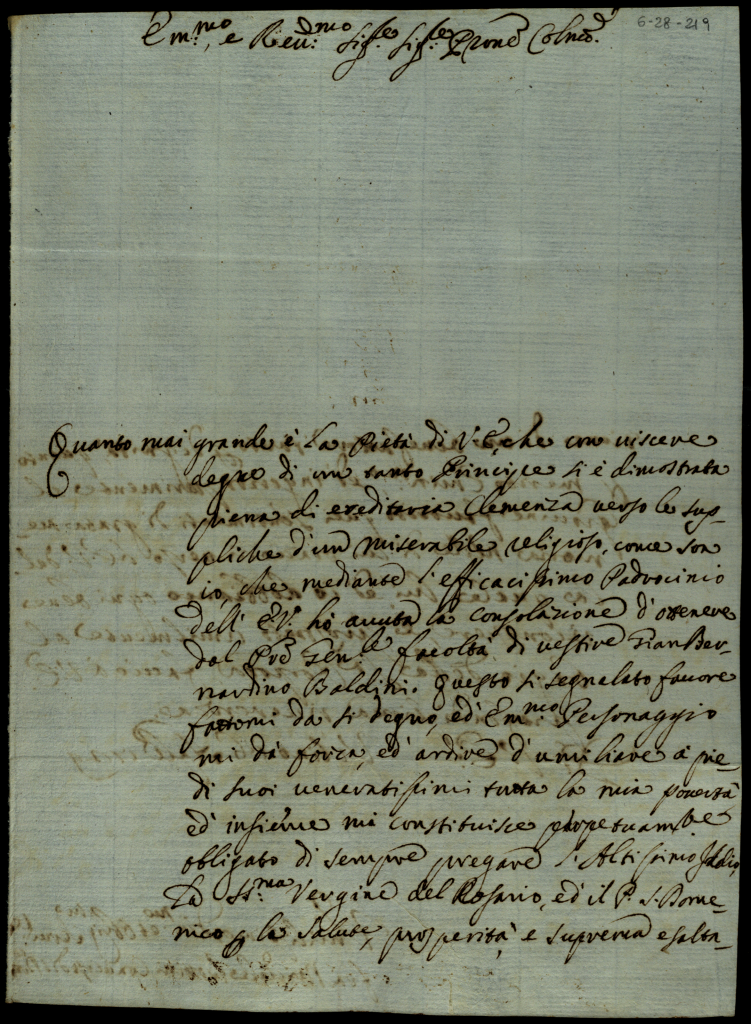 6-28-219
Em.mo, e Reu.dmo Sig.re Sig.re Prone Colmo.
Quanto mai grande è La Pietà di V. E. che con viscere
degne di un tanto Principe si è dimostrata
piena di ereditaria Clemenza verso le sup-
pliche d'un miserabile religioso, come son
io, che mediante l'efficacissimo Padrocinio
dell' E.V. hò auuta la consolazione d'ottenere
dal Prè Gen.le facoltà di vestire Gian Ber-
nardino Baldini. Questo sì segnalato fauore
fattomi da sì degno, ed' Em.mo Personaggio
mi dà forza, ed' ardire d'umiliare à pie-
di suoi veneratissimi tutta la mia pouertà
ed' insieme mi constituisce perpetuam.te
obligato di sempre pregare l'Altissimo Iddio,
La SS.ma Vergine del Rosario, ed' il P. S. Dome-
nico p la salute, prosperità, e suprema esalta-